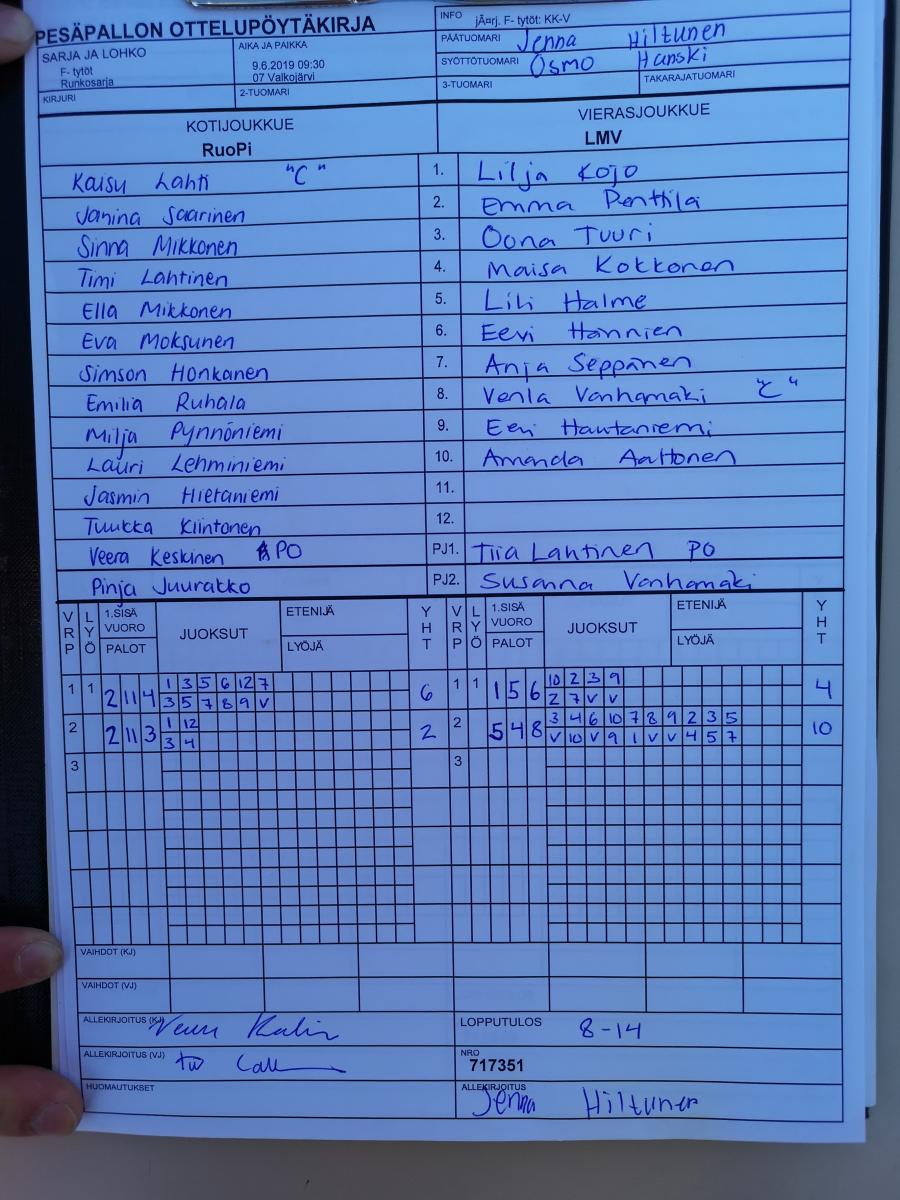 PESÄPALLON OTTELUPÖYTÄKIRJA
INFO jÃ¤rj. F- tytöt: KK-V
SARJA JA LOHKO
F- tytöt
Runkosarja
AIKA JA PAIKKA
9.6.2019 09:30
07 Valkojärvi
PÄÄTUOMARI Jenna Hiltunen
SYÖTTÖTUOMARI Osmo Hanski
KIRJURI
2-TUOMARI
3-TUOMARI
TAKARAJATUOMARI
KOTIJOUKKUE
RuoPi
VIERASJOUKKUE
LMV
Kaisu Lahti "C" 1. Lilja Kojo
Janina Saarinen 2. Emma Penttilä
Sinna Mikkonen 3. Oona Tuuri
Timi Lahtinen 4. Maisa Kokkonen
Ella Mikkonen 5. Lili Halme
Eva Moksunen 6. Eevi Hännien
Simson Honkanen 7. Anja Seppänen
Emilia Ruhala 8. Venla Vanhamäki "C"
Milja Pynnöniemi 9. Eevi Hautaniemi
Lauri Lehminiemi 10. Amanda Aaltonen
Jasmin Hietaniemi 11.
Tuukka Kiintonen 12.
Veera Keskinen PO PJ1. Tiia Lahtinen PO
Pinja Juuratko PJ2. Susanna Vanhamäki
VRP LYÖ 1.SISÄ VUORO PALOT JUOKSUT ETENIJÄ LYÖJÄ YHT VRP LYÖ 1.SISÄ VUORO PALOT JUOKSUT ETENIJÄ LYÖJÄ YHT
1 1 2 11 4 1 3 5 6 12 7 6 1 1 1 5 6 10 2 3 9 4
3 5 7 8 9 V 2 7 V V
2 2 11 3 1 12 2 2 5 4 8 3 4 6 10 7 8 9 2 3 5 10
3 4 V 10 V 9 1 V V 4 5 7
3 3
VAIHDOT (KJ)
VAIHDOT (VJ)
ALLEKIRJOITUS (KJ)
LOPPUTULOS 8-14
ALLEKIRJOITUS (VJ)
NRO
717351
HUOMAUTUKSET
ALLEKIRJOITUS
Jenna Hiltunen